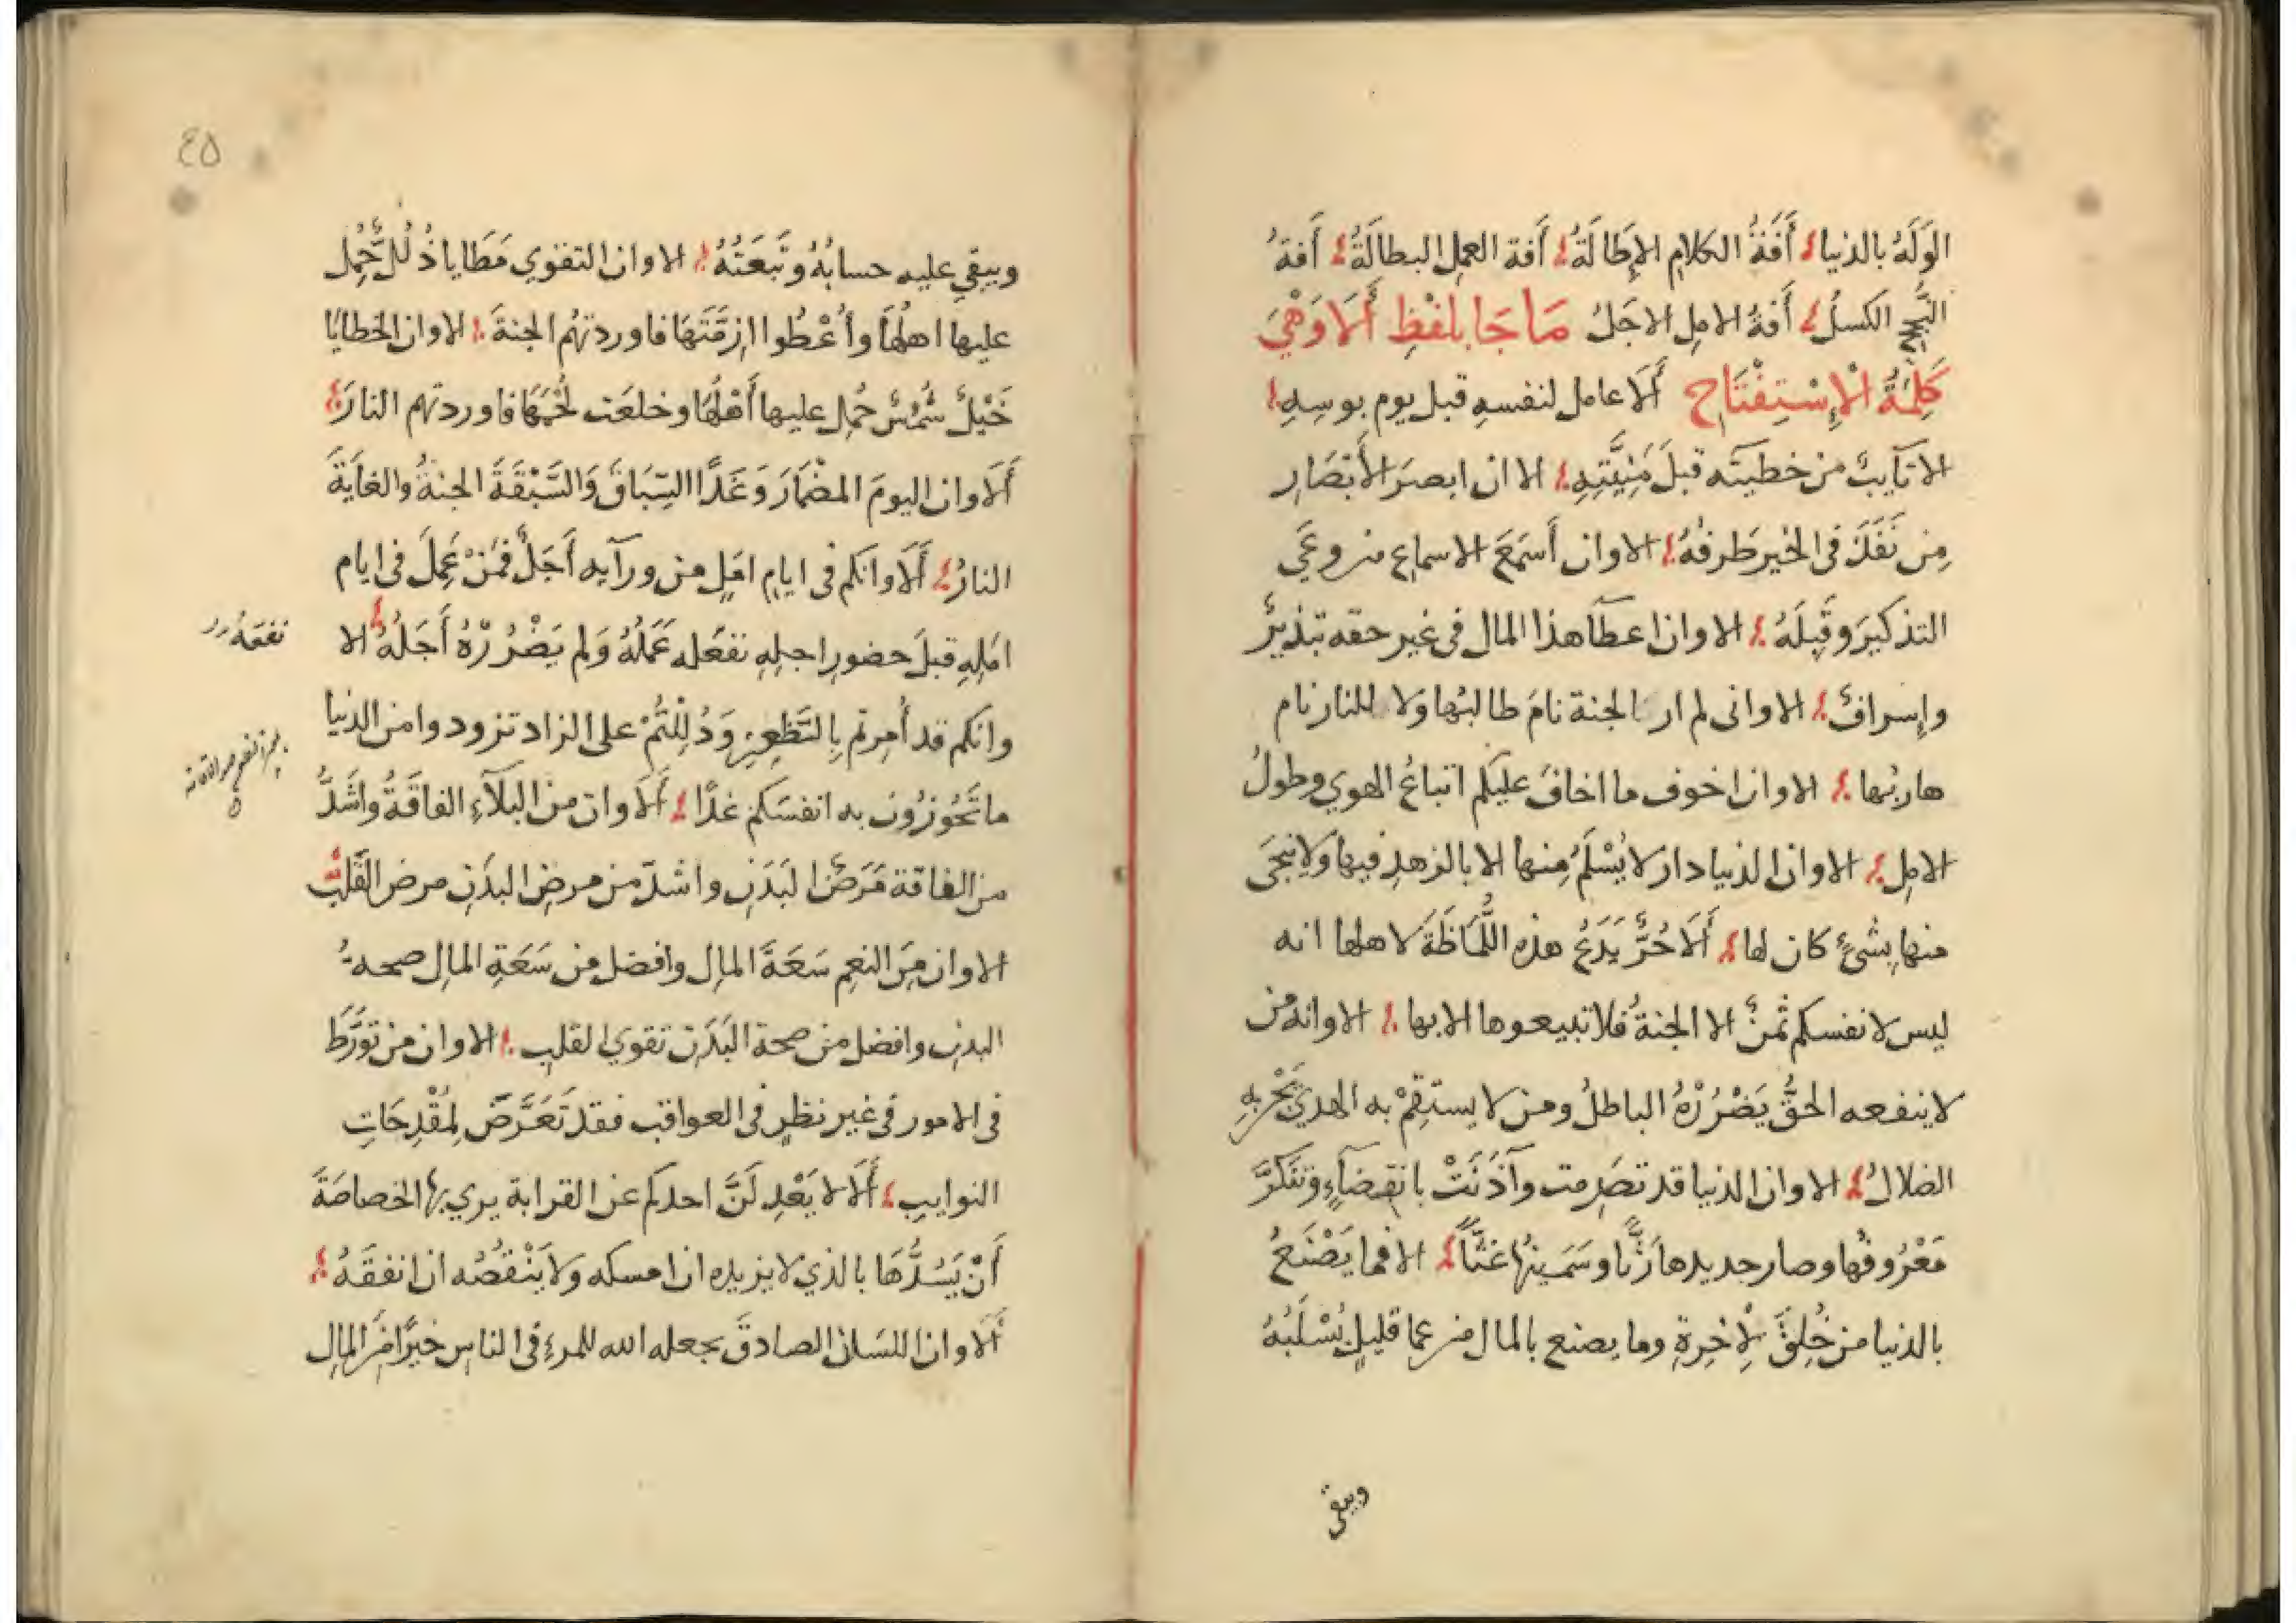 الوَلَهُ بالدنيا أَفَةُ الكلامِ الإِطَالَةُ أَفة العملِ البطالَةُ أَفةُ
النُّجْحِ الكسلُ أَفةُ الاملِ الاجَلُ مَا جَا بِلَفْظِ أَلَا وَهْيَ
كَلِمَةُ الْإِسْتِفْتَاحِ أَلَا عامل لنفسهِ قبل يوم بوسِهِ
الا تآيبٌ من خطيته قبلَ مَنِيَّتِهِ الا ان ابصرَ الأَبْصَارِ
مِن نَفَذَ فى الخيرِ طَرفُهُ الا وان أَسمَعَ الاسماعِ من وعَي
التذكيرَ وقَبِلَهُ الا وان اعطآ هذا المال فى غير حقه تبذيرٌ
وإِسرافٌ الا وانى لم ار الجنة نامَ طالبُها ولا للنار نام
هاربُها الا وان اخوف ما اخافُ عليكم اتباعُ الهوي وطولُ
الاملِ الا وان الدنيا دار لا يُسْلَمُ مِنها الا بالزهدِ فيها ولا يُنجَى
منها بِشيٍ كان لها أَلَا حُرٌّ يَدَعُ هذه اللُّمَاظَةَ لاهلها انه
ليس لانفسكم ثمنٌ الا الجنةُ فلا تبيعوها الا بها الا وانه من
لا ينفعه الحقُّ يَضْرُرْهُ الباطلُ ومن لا يستقِمْ به الهدي يَجُرُّ بِهِ
الضلالُ الا وان الدنيا قد تصَرمت وآذَنَتْ بانقِضآءٍ وتنَكَّرَ
مَعْرُوفُها وصار جديدها رَثًّا وسَمِينُها غَثًّا الا فما يَصْنَعُ
بالدنيا من خُلِقَ لِلْاخِرةِ وما يصنع بالمال من عما قليلٍ يُسْلَبُهُ
ويبقى
٤٥
ويبقي عليه حسابُهُ وتَبِعَتُهُ الا وان التقوي مَطَايا ذُلُلٌ حُمِل
عليها اهلُها وأُعْطُوا ازِمَّتَهَا فاوردتهُم الجنةَ الا وان الخطايا
خَيْلٌ شُمُسٌ حُمِل عليها أَهْلُهَا وخلعَت لُجُمُهَا فاوردتهم النارَ
أَلَا وان اليومَ المضْمَارَ وَغَدًا السِّبَاقَ وَالسَّبْقَةَ الجنةُ والغايَةَ
النارُ أَلَا وانكم فى ايامِ امَلٍ من ورآيه أَجَلٌ فَمَنْ عَمِلَ فى ايام
امَلِهِ قبلَ حضورِ اجلِهِ نفعَله عَمَلُهُ وَلم يَضْرُرْهُ أَجَلُهُ الا
نفعَهُ
وانكم قد أُمِرتم بِالظَّعِنِ وَدُلِلْتُمْ على الزاد تزودوا من الدنيا
ما تَحُوزُون به انفسَكم غدًا أَلَا وان من البلآءِ الفاقَةُ واشَدُّ
من الفاقة مَرَضُ البَدَنِ واشدّ من مرضِ البدَنِ مرض القَلبِ
الا وان مِنَ النعِم سَعَةَ المالِ وافضل من سَعَةِ المالِ صحةُ
البدنِ وافضل من صحة البَدَنِ تقوي القلبِ الا وان من تَوَرَّطَ
فى الامور فى غير نظرٍ فى العواقب فقد تَعَرَّضَ لِمُقْدِحَاتِ
النوايبِ أَلَا لا يَعْدِلَنَّ احدكم عن القرابة يري بها الخصاصَةَ
أَنْ يَسُدَّهَا بالذي لا يزيده ان امسكه ولا يَنْقُصُه ان انفقَهُ
أَلَا وان اللسَان الصادقَ يجعله الله للمرءِ فى الناسِ خيرًا مِنَ المالِ